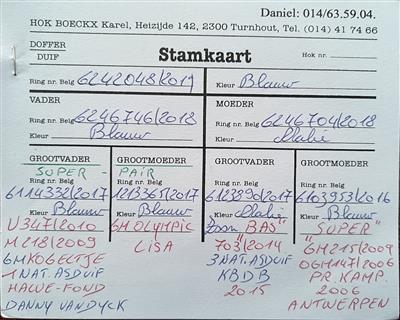 Daniel: 014/63.59.04.
HOK BOECKX Karel, Heizijde 142, 2300 Turnhout, Tel. (014) 41 74 66
DOFFER
DUIF
Stamkaart
Hok nr.
Ring nr. Belg 6242048/2019
Kleur Blauw
VADER
MOEDER
Ring nr. Belg 6246746/2018
Ring nr. Belg 6246704/2018
Kleur Blauw
Kleur
GROOTVADER
GROOTMOEDER
GROOTVADER
GROOTMOEDER
SUPER - PAIR
Ring nr. Belg
Ring nr. Belg
Ring nr. Belg
Ring nr. Belg
6114332/2017
1213365/2017
6123890/2017
6103953/2016
Kleur Blauw
Kleur Blauw
Kleur
Kleur Blauw
V347/2010
M218/2009
6M KOGELTJE
1 NAT. ASDUIF
HALVE-FOND
DANNY VAN DYCK
6M OLYMPIC
LISA
Zoon "BAS"
703/2014
3 NAT. ASDUIF
KBDB
2015
"SUPER"
6M 215/2009
OGM 147/2006
PR. KAMP.
2006
ANTWERPEN